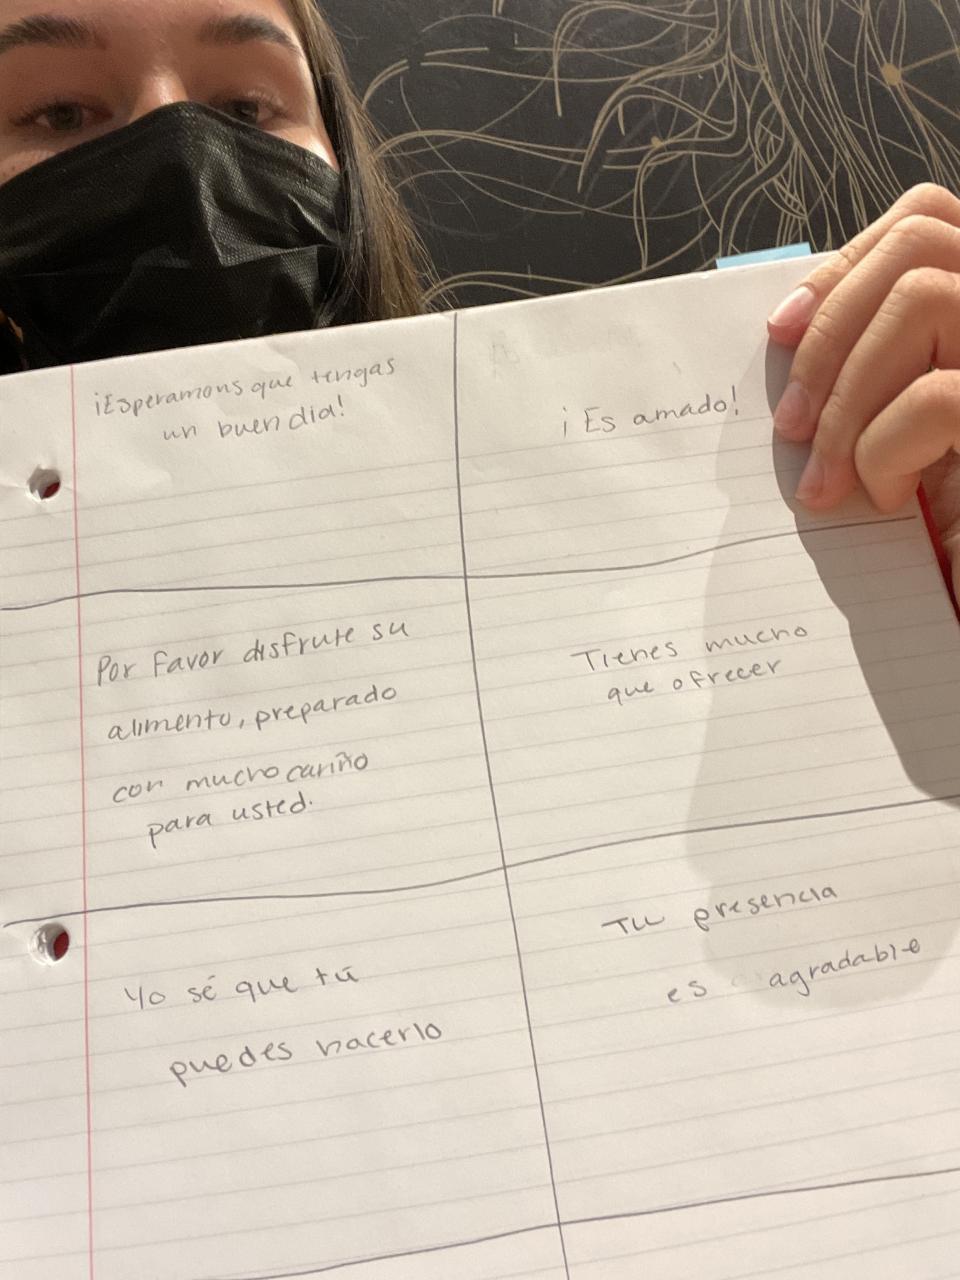 ¡Esperamons que tengas
un buen dia!
¡Es amado!
Por favor disfrute su
alimento, preparado
con mucho cariño
para usted.
Tienes mucho
que ofrecer
Yo sé que tú
puedes hacerlo
Tu presencia
es agradable